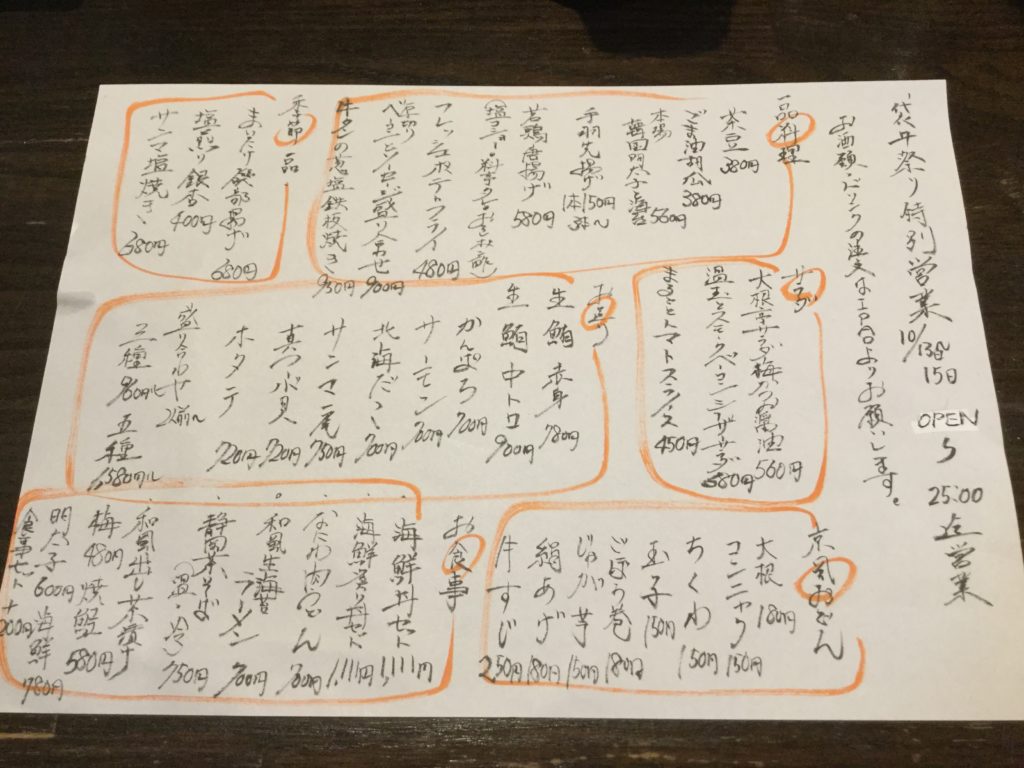 祭り特別営業 10/13日〜15日 OPEN 〜 25:00 迄営業
お酒類・ドリンクの注文は1F BARよりお願いします。
一品料理
茶豆 380円
ごま油胡瓜 380円
本場韓国明太子と海苔 560円
手羽先揚げ 1本150円 3本〜
若鶏唐揚げ 580円
(塩コショー
フレッシュポテトフライ 480円
厚切りベーコンとソーセージ盛り合わせ 900円
牛タンの葱塩鉄板焼き 950円
季節一品
まいたけ磯部揚げ 680円
塩煎り銀杏 400円
サンマ塩焼き 680円
サラダ
大根
560円
温玉とスモークベーコンシーザーサラダ 680円
まるごとトマトスライス 450円
お造り
生鮪赤身 780円
生鮪中トロ 900円
かんぱち 700円
サーモン 700円
北海だこ 700円
サンマ一尾 750円
真つぶ貝 720円
ホタテ 720円
盛り合わせ 2人前〜
三種
五種
京風おでん
大根 180円
コンニャク 150円
ちくわ 150円
玉子 150円
ごぼう巻 180円
じゃが芋 150円
絹あげ 180円
牛すじ 250円
お食事
海鮮丼セット 1,111円
海鮮ちらし丼セット 1,111円
なにわ肉うどん 700円
和風生海苔ラーメン 700円
静岡茶そば (温・冷) 750円
和風出し茶漬け
梅 480円 焼鮭 580円
明太子 600円 海鮮 780円
食事セット +200円